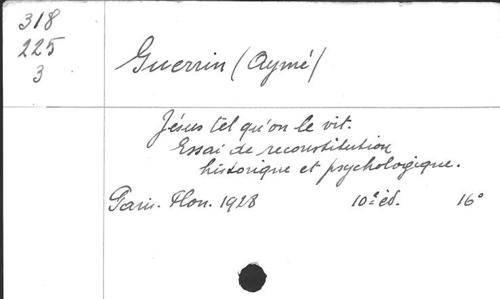 318
225
3
Guerrin (Aymé)
Jésus tel qu'on le vit.
Essai de reconstitution
historique et psychologique.
Paris. Plon. 1928 10e éd. 16°